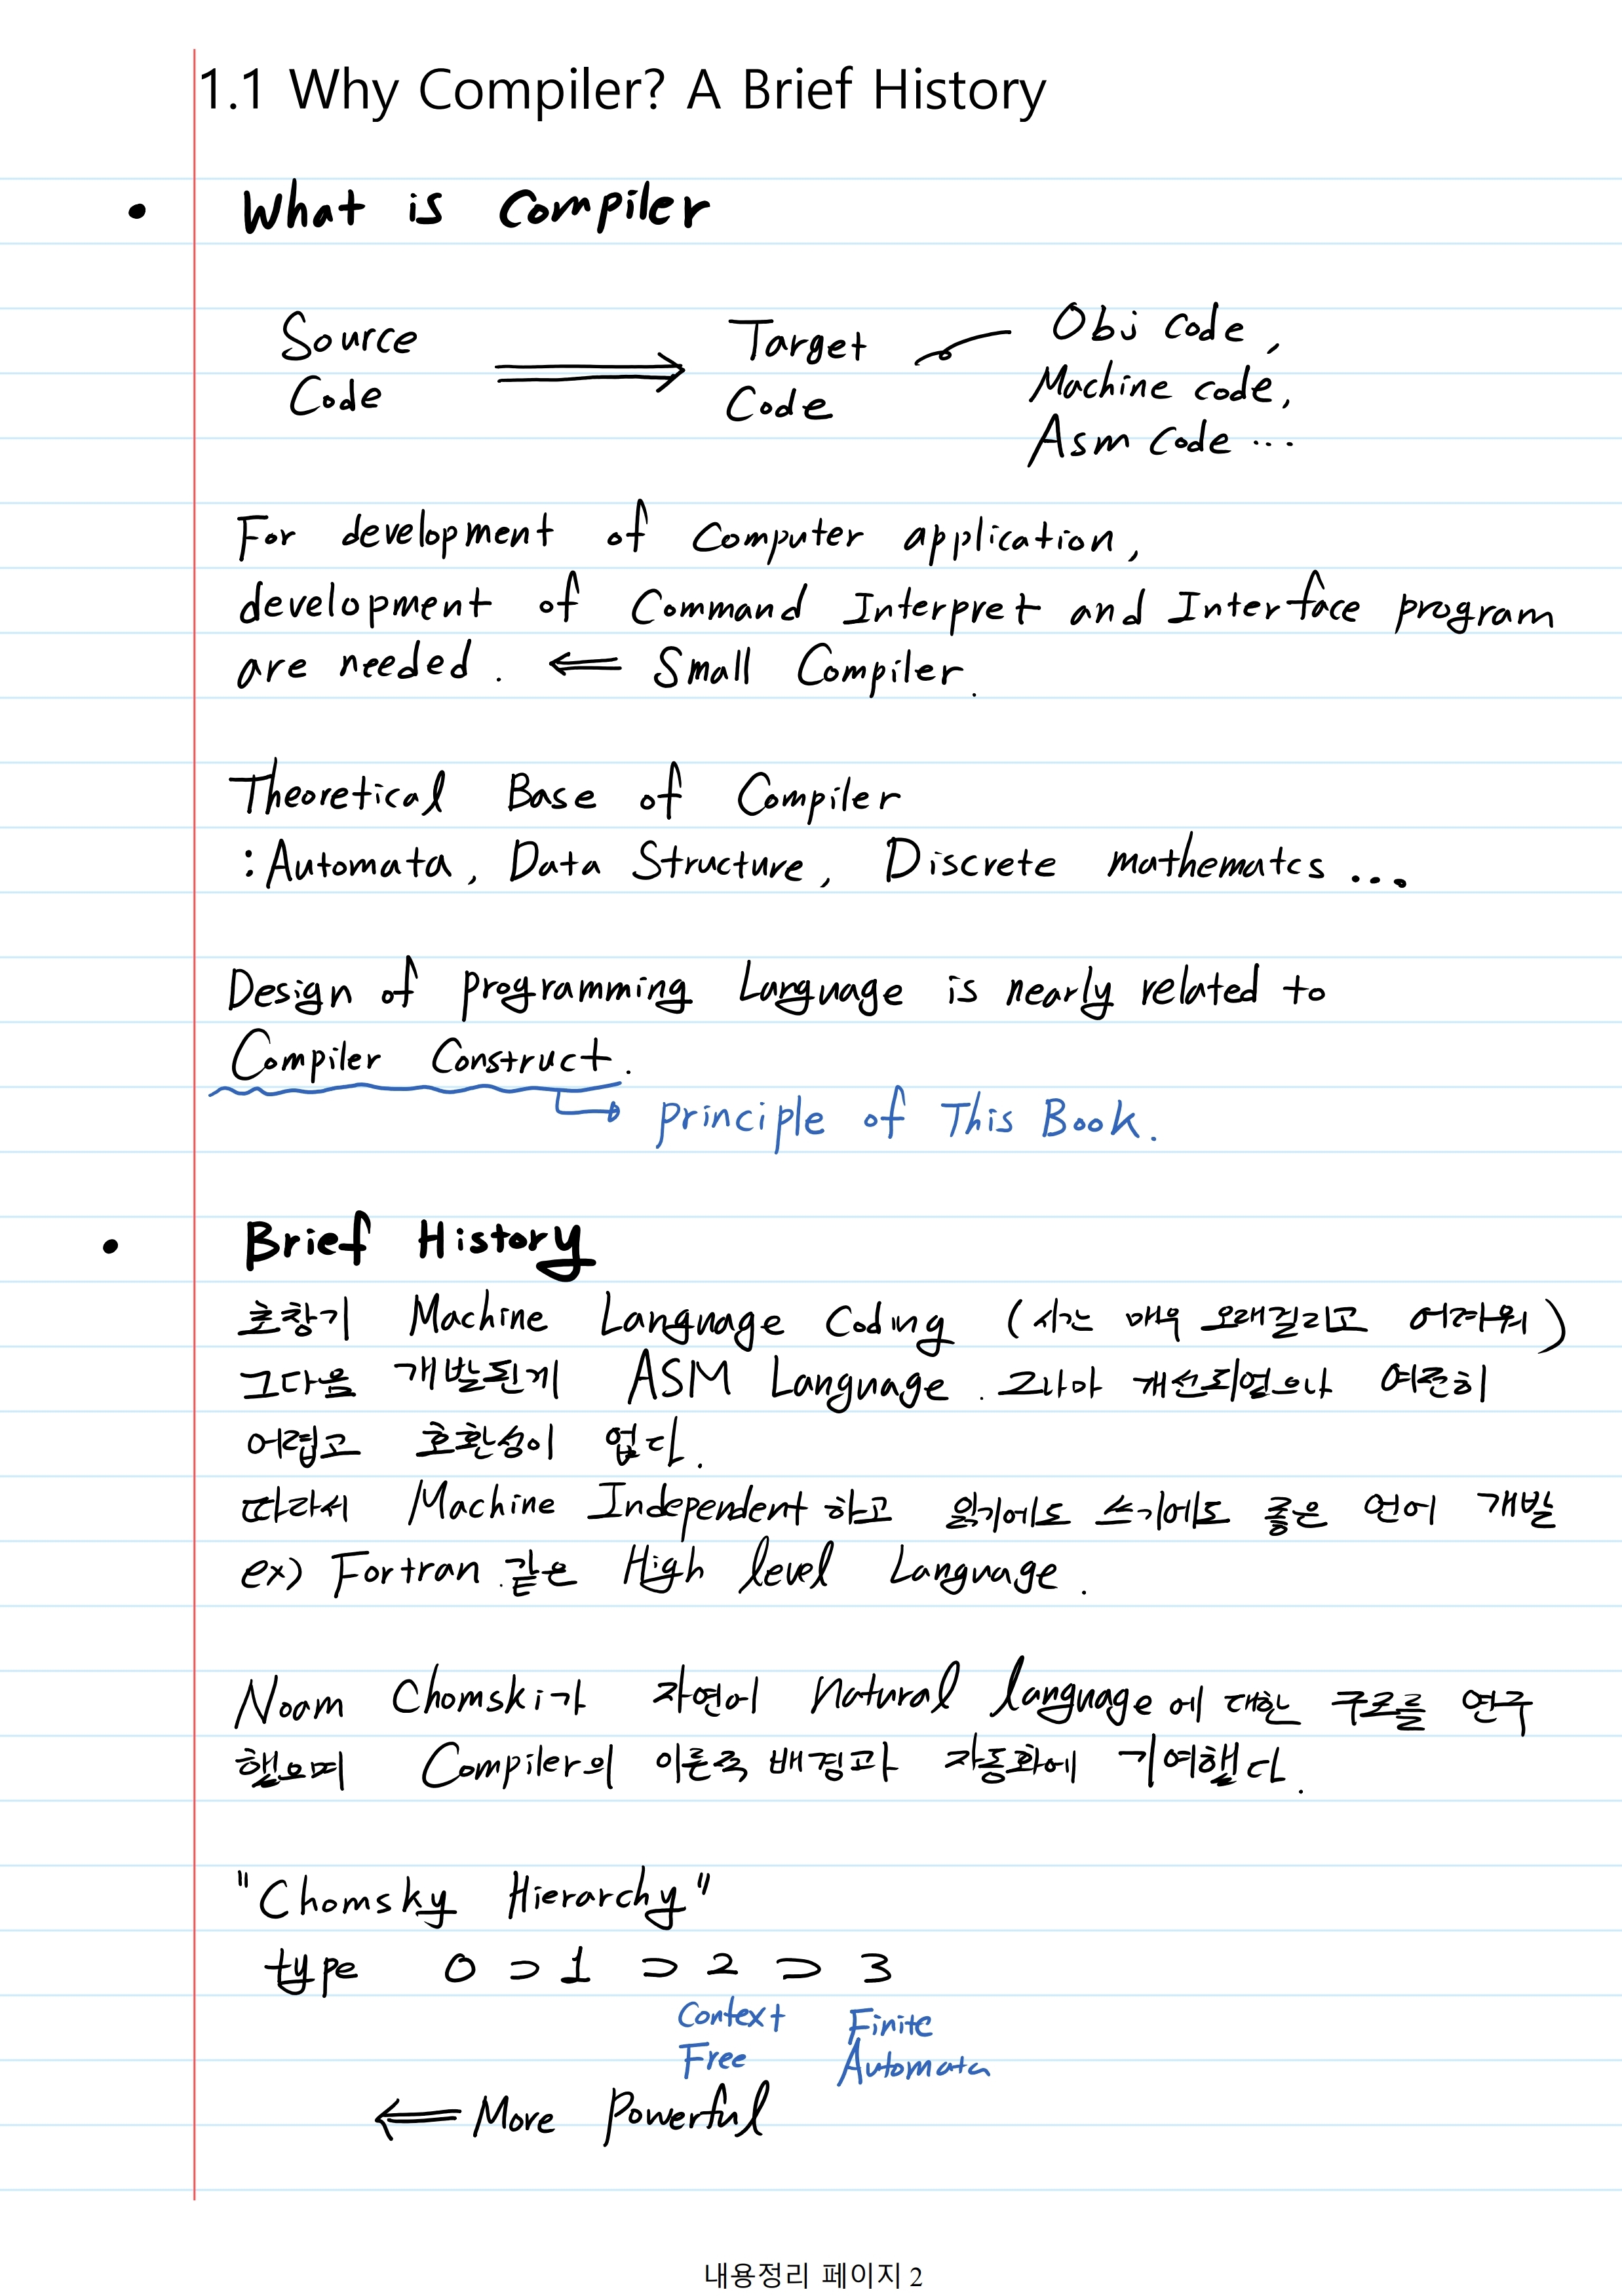 1.1 Why Compiler? A Brief History
• What is Compiler
Source Code ⟹ Target Code
Obj code,
Machine code,
Asm code ...
For development of Computer application,
development of Command Interpret and Interface program
are needed. ⟸ Small Compiler.
Theoretical Base of Compiler
: Automata, Data Structure, Discrete mathematcs ...
Design of programming Language is nearly related to
Compiler Construct.
principle of This Book.
• Brief History
초창기 Machine Language Coding (시간 매우 오래걸리고 어려워)
그다음 개발된게 ASM Language. 그나마 개선되었으나 여전히
어렵고 호환성이 없다.
따라서 Machine Independent 하고 읽기에도 쓰기에도 좋은 언어 개발
ex) Fortran 같은 High level Language.
Noam Chomski가 자연어 Natural language에 대한 구조를 연구
했으며 Compiler의 이론적 배경과 자동화에 기여했다.
"Chomsky Hierarchy"
type 0 ⊃ 1 ⊃ 2 ⊃ 3
Context Free
Finite Automata
⟸ More Powerful
내용정리 페이지 2